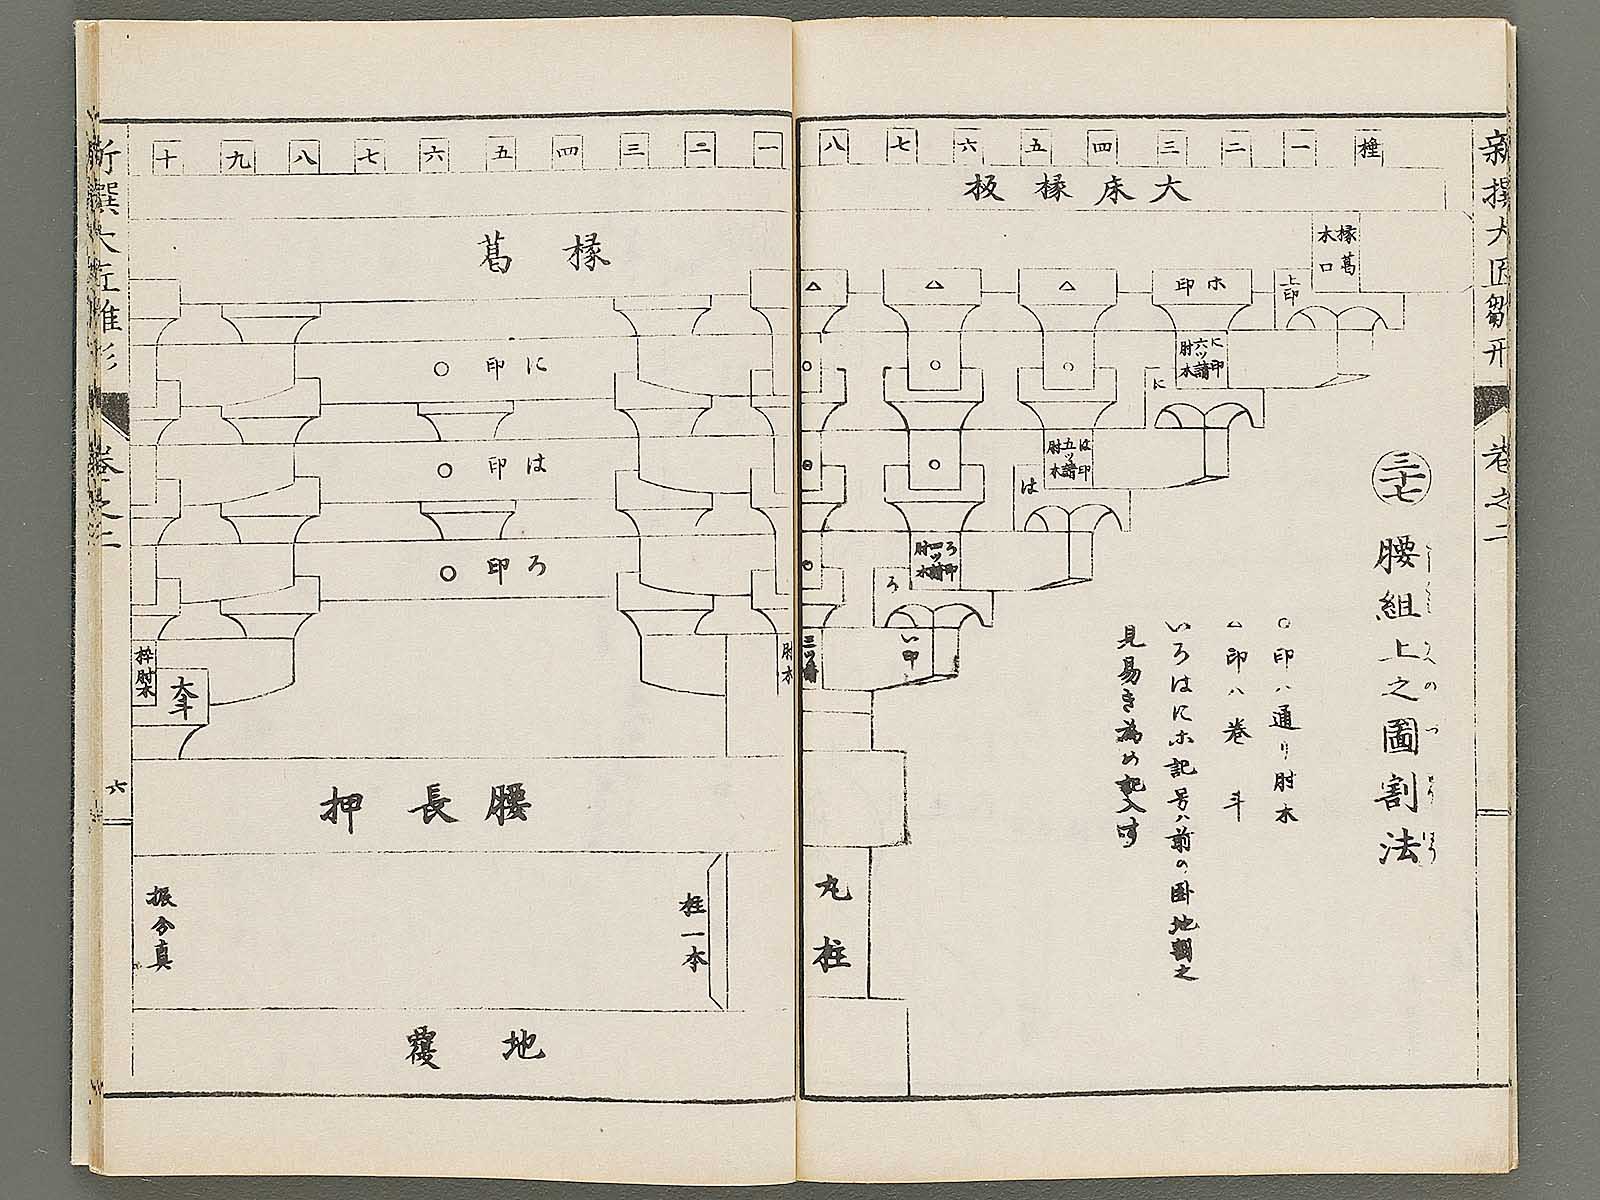 新撰大匠雛形
巻之二
三十七 腰組上之圖割法
こしぐみうへのづわりほう
○印ハ通リ肘木
△印ハ巻斗
いろはにホ記号ハ前の卧地割之
見易き為め記入す
棰 一 二 三 四 五 六 七 八
大床椽板
椽葛
木口
上印
ホ印
△
△
△
に印
六ツ請
肘木
に
○
○
○
は印
五ツ請
肘木
は
○
ろ印
四ツ請
肘木
ろ
い印
三ツ請
肘木
丸柱
一 二 三 四 五 六 七 八 九 十
椽葛
に印 ○
は印 ○
ろ印 ○
枠肘木
大斗
腰長押
柱一本
振分真
地覆
新撰大匠雛形
巻之二
六